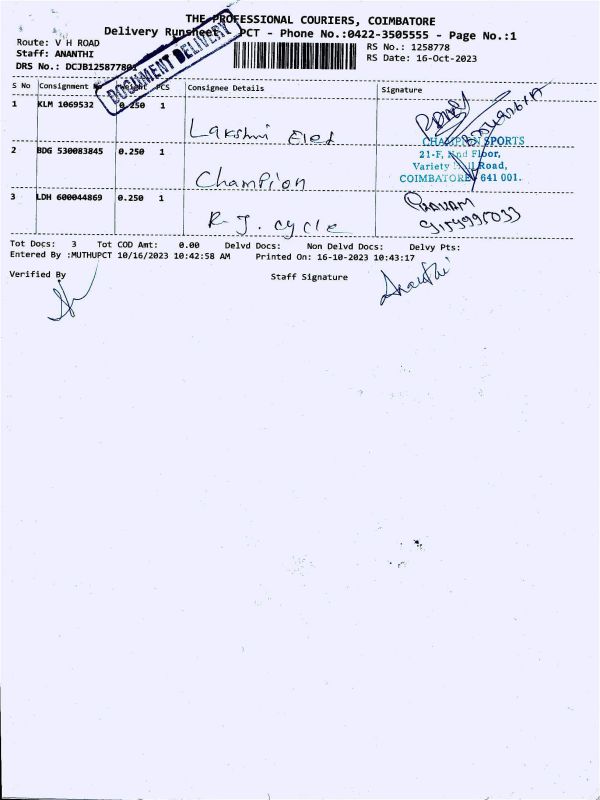 THE PROFESSIONAL COURIERS, COIMBATORE
Delivery Runsheet, PCT - Phone No.:0422-3505555 - Page No.:1
Route: V H ROAD
RS No.: 1258778
Staff: ANANTHI
RS Date: 16-Oct-2023
DRS No.: DCJB1258778
DOCUMENT DELIVERY
S No Consignment PCS Consignee Details Signature
1 KLM 1069532 0.250 1 Lakshmi Eled
CHAMPION SPORTS
2 BDG 530083845 0.250 1 Champion
21-F, IInd Floor,
Variety Road,
COIMBATORE 641 001.
3 LDH 600044869 0.250 1 R J. cycle
Tot Docs: 3 Tot COD Amt: 0.00 Delvd Docs: Non Delvd Docs: Delvy Pts:
Entered By :MUTHUPCT 10/16/2023 10:42:58 AM Printed On: 16-10-2023 10:43:17
Verified By Staff Signature
Ananthi